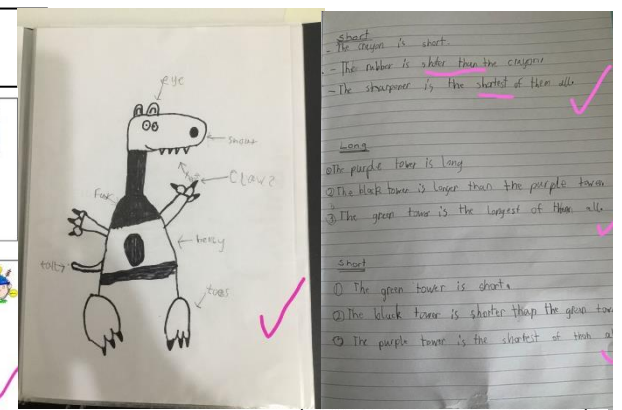 eye
snout
Claws
Fur
tail
toes
Short
- The crayon is short.
- The rubber is shoter than the crayon.
- The sharpener is the shortest of them all.
Long
① The purple tower is long
② The black tower is longer than the purple tower
③ The green tower is the longest of them all.
Short
① The green tower is short.
② The black tower is shorter than the green tow
③ The purple tower is the shortest of them a